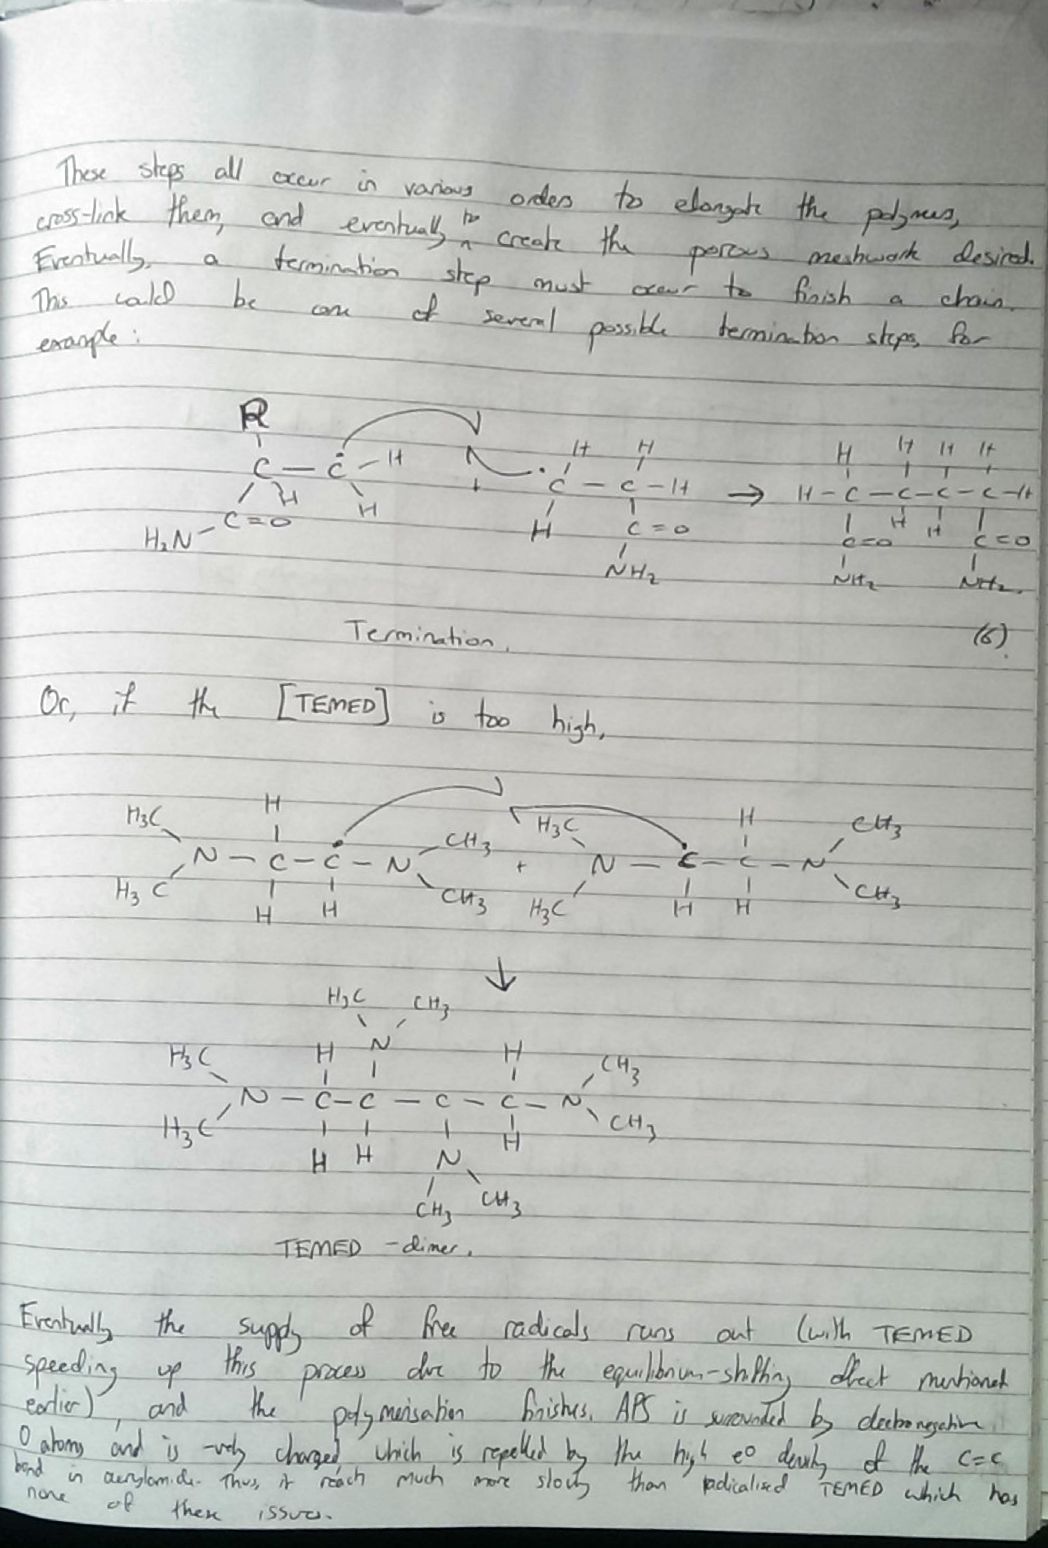 These steps all occur in various orders to elongate the polymers,
cross-link them, and eventually to create the porous meshwork desired.
Eventually, a termination step must occur to finish a chain.
This could be one of several possible termination steps, for
example:
R H H H H H H
C — C – H + · C – C – H → H – C – C – C – C – H
H H H H H
H₂N – C = O C = O C=O C=O
NH₂ NH₂ NH₂
Termination. (6)
Or, if the [TEMED] is too high,
H₃C H CH₃ H₃C H CH₃
N – C – C – N + N – C – C – N
H₃C H H CH₃ H₃C H H CH₃
↓
H₃C CH₃
H₃C H N H CH₃
N – C – C – C – C – N
H₃C H H N H CH₃
CH₃ CH₃
TEMED - dimer.
Eventually the supply of free radicals runs out (with TEMED
speeding up this process due to the equilibrium-shifting effect mentioned
earlier), and the polymerisation finishes. APS is surrounded by electronegative
O atoms and is -vely charged, which is repelled by the high e⊖ density of the C=C
bond in acrylamide. Thus, it reach much more slowly than radicalised TEMED which has
none of these issues.